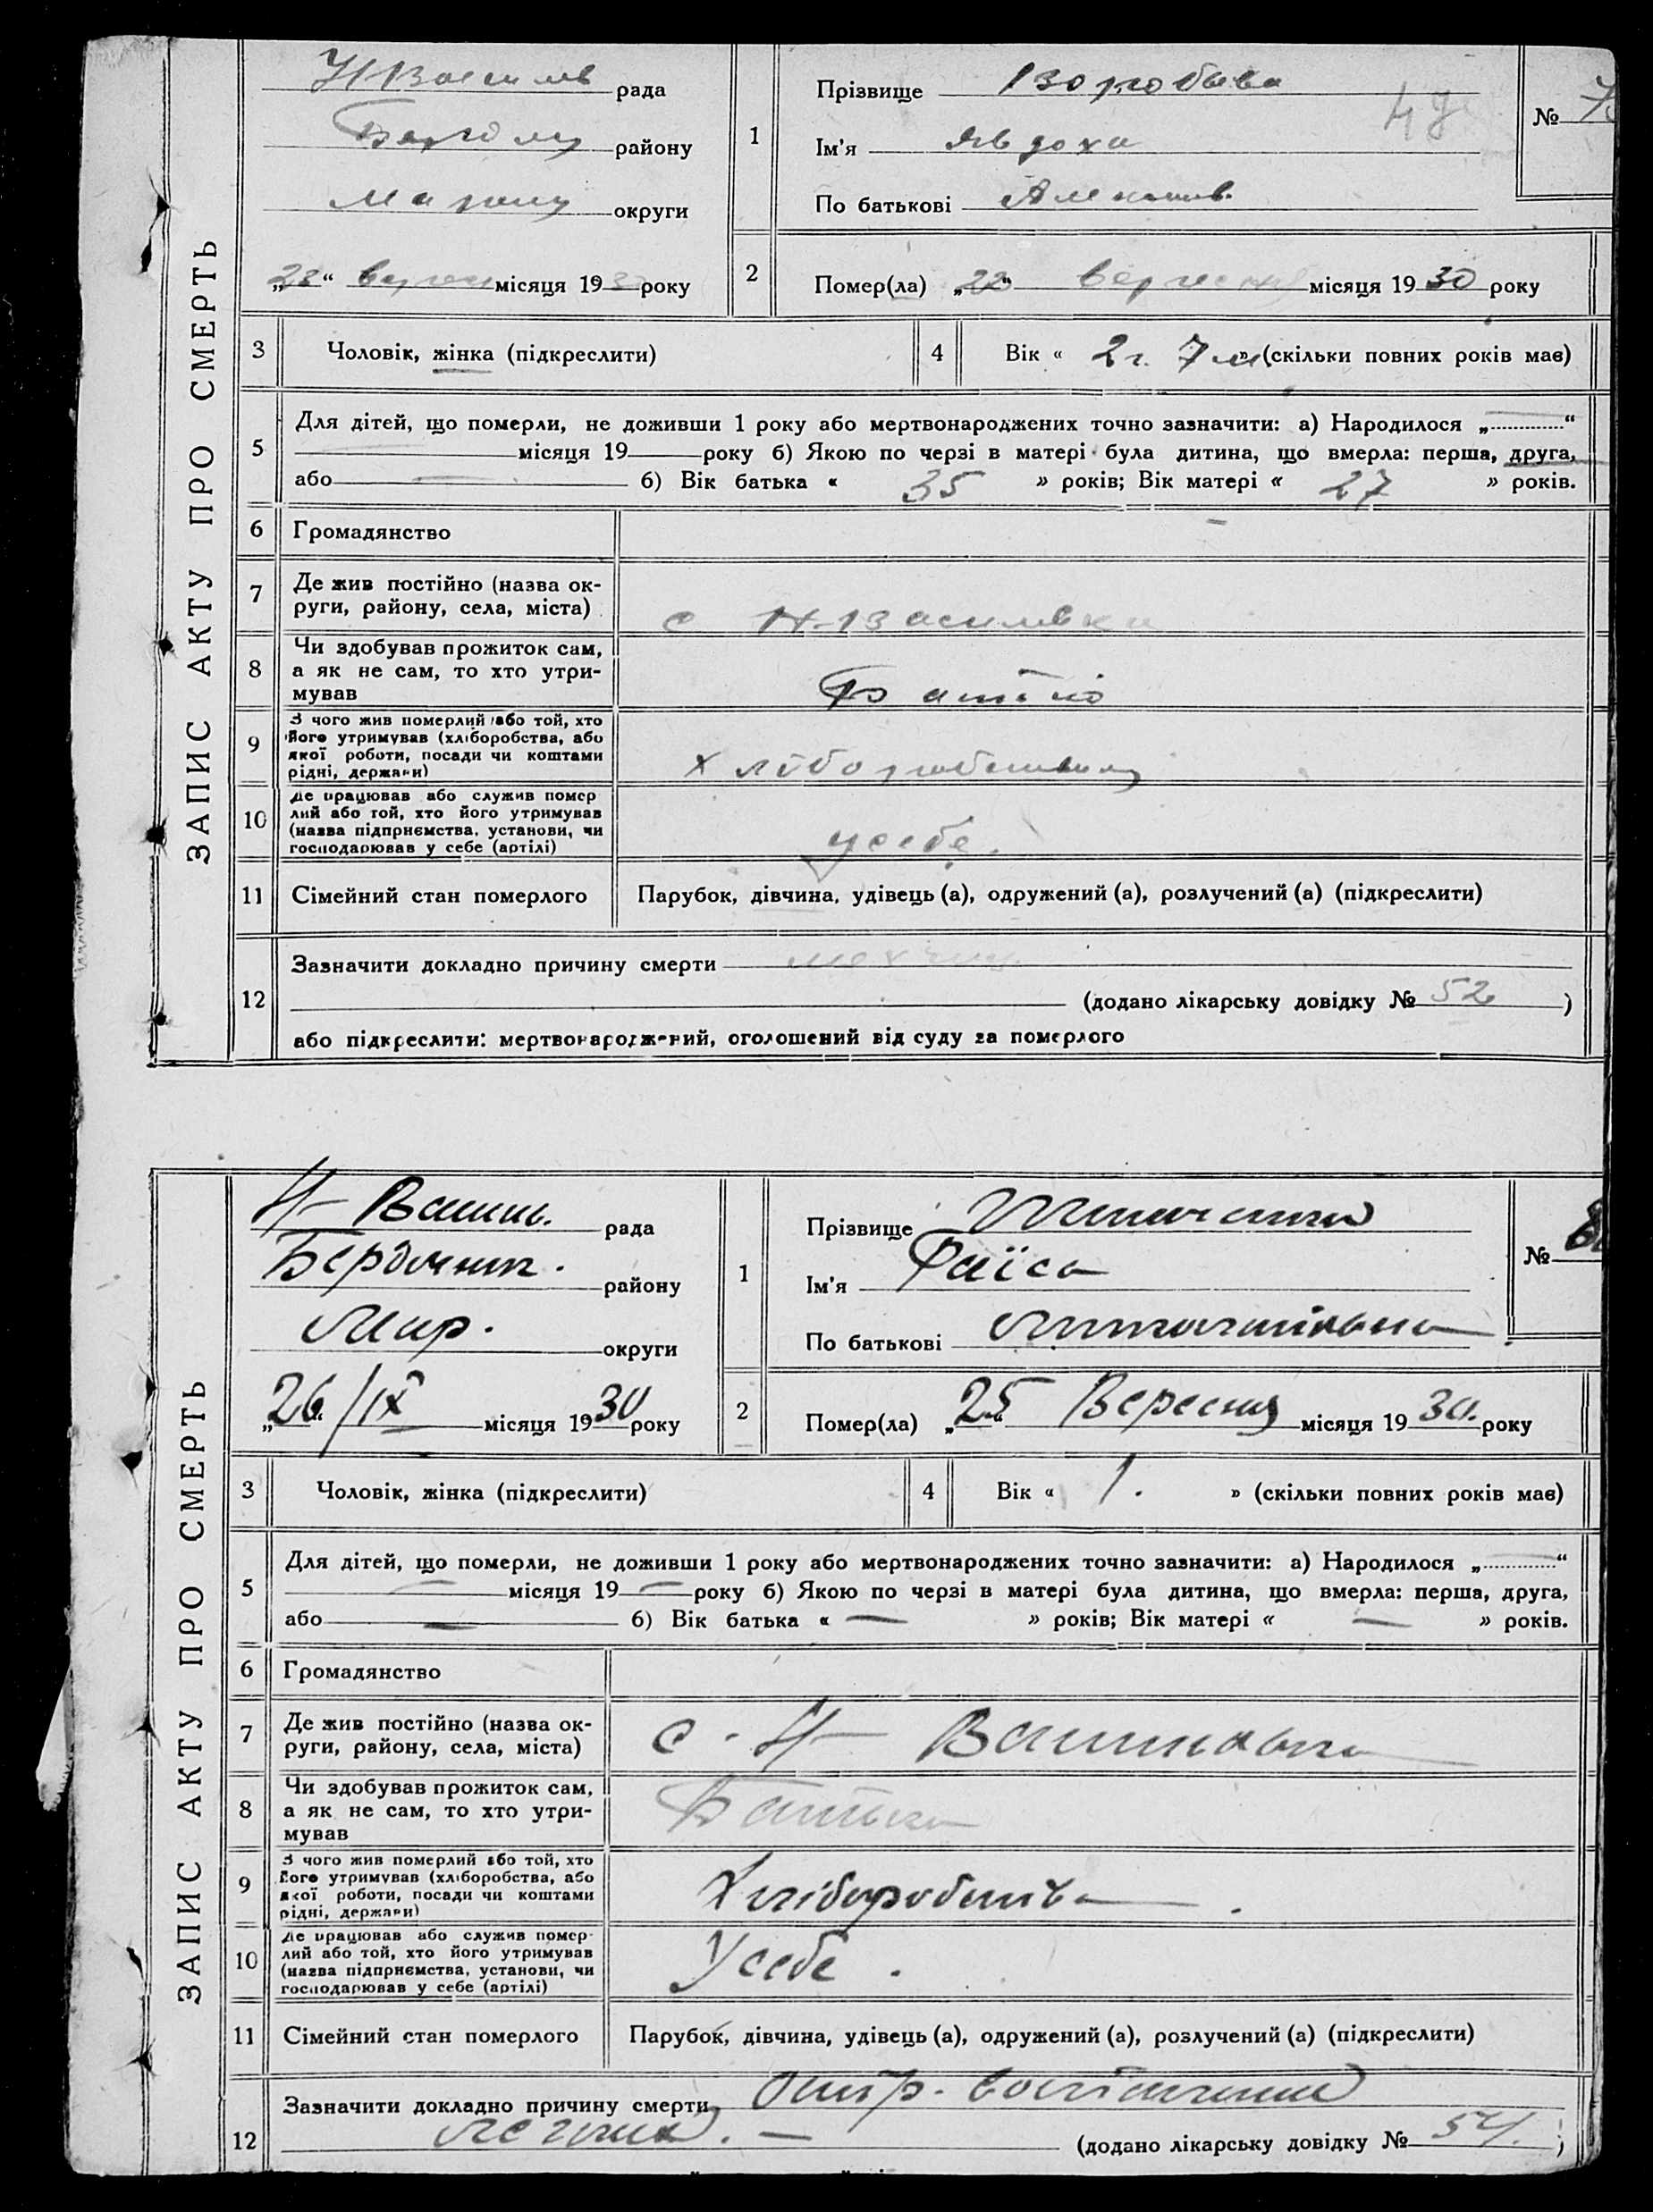 ЗАПИС АКТУ ПРО СМЕРТЬ
Н-Василв рада
Бердян району
Маріуп округи
„23“ вересн місяця 1930 року
1 Прізвище Воробьева
Ім'я Явдоха
По батькові
№
2 Помер(ла) „22“ вересня місяця 1930 року
3 Чоловік, жінка (підкреслити)
4 Вік « 2 г. 7 м » (скільки повних років має)
5 Для дітей, що померли, не доживши 1 року або мертвонароджених точно зазначити: а) Народилося „ “
— місяця 19 року б) Якою по черзі в матері була дитина, що вмерла: перша, друга,
або — б) Вік батька « 35 » років; Вік матері « 27 » років.
6 Громадянство
7 Де жив постійно (назва ок-
руги, району, села, міста)
с Н-Василівка
8 Чи здобував прожиток сам,
а як не сам, то хто утри-
мував
Батько
9 З чого жив померлий або той, хто
його утримував (хліборобства, або
якої роботи, посади чи коштами
рідні, держави)
хліборобством
10 Де працював або служив помер
лий або той, хто його утримував
(назва підприємства, установи, чи
господарював у себе (артілі)
у себе.
11 Сімейний стан померлого
Парубок, дівчина, удівець (а), одружений (а), розлучений (а) (підкреслити)
12 Зазначити докладно причину смерти
(додано лікарську довідку № 52 )
або підкреслити: мертвонароджений, оголошений від суду за померлого
ЗАПИС АКТУ ПРО СМЕРТЬ
Н-Васил. рада
Бердянськ. району
Мар. округи
„26“ /IX місяця 1930 року
1 Прізвище
Ім'я Раїса
По батькові
№
2 Помер(ла) „25“ Вересня місяця 1930. року
3 Чоловік, жінка (підкреслити)
4 Вік « 1. » (скільки повних років має)
5 Для дітей, що померли, не доживши 1 року або мертвонароджених точно зазначити: а) Народилося „ “
— місяця 19 — року б) Якою по черзі в матері була дитина, що вмерла: перша, друга,
або — б) Вік батька « — » років; Вік матері « — » років.
6 Громадянство
7 Де жив постійно (назва ок-
руги, району, села, міста)
с. Н- Василівка
8 Чи здобував прожиток сам,
а як не сам, то хто утри-
мував
Батько
9 З чого жив померлий або той, хто
його утримував (хліборобства, або
якої роботи, посади чи коштами
рідні, держави)
Хліборобства.
10 Де працював або служив помер-
лий або той, хто його утримував
(назва підприємства, установи, чи
господарював у себе (артілі)
У себе.
11 Сімейний стан померлого
Парубок, дівчина, удівець (а), одружений (а), розлучений (а) (підкреслити)
12 Зазначити докладно причину смерти
легких. —
(додано лікарську довідку № 54. )